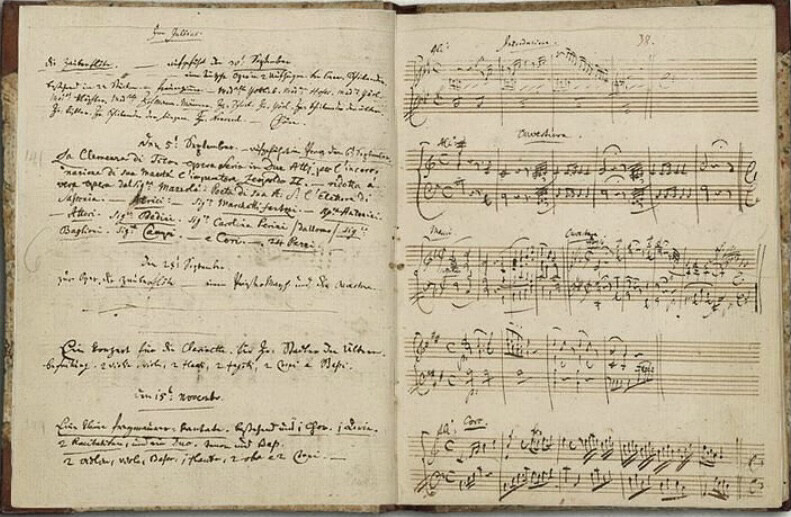 Im Jullius.
die Zauberflöte. — aufgeführt den 30t September.
eine teutsche Oper in 2 Aufzügen. von Eman. Schikaneder.
bestehend in 22 Stücken. — frauenzimmer. — Mad:selle Gottlieb. Mad:me Hofer. Mad:me Görl.
Mad:me Klöpfler. Mad:selle Hofmann. Männer. Hr: Schack. Hr: Görl. Hr: Schikaneder der ältere.
Hr: Kistler. Hr: Schikaneder der Jüngere. Hr: Nouseul. — Chöre.
141
Den 5t September. — aufgeführt in Prag den 6t September.
La Clemenza di Tito. opera Seria in Due Atti. per l'incoro-
nazione di sua Maestà l'imperatore Leopoldo II. — ridotta à
vera opera dal Sig:re Mazzolà. Poeta di sua A: S: l'Elettore di
Sassonia. — Attrici: — Sig:ra Marchetti fantozi. — Sig:ra Antonini.
— Attori. Sig:re Bedini. Sig:ra Carolina Perini / da uomo / Sig:re
Baglioni. Sig:re Campi. — e Cori. — 24 Pezzi.
Den 28t September
zur Oper. die Zauberflöte — einen Priestermarsch und die Ouverture.
Ein Konzert für die Clarinette. für Hr: Stadler den ältern.
begleitung. 2 violini, viole, 2 flauti, 2 fagotti, 2 Corni e Bassi.
Den 15t Novembr.
Eine kleine freymaurer-kantate. bestehend aus 1 Chor. 1 Aria.
2 Recitativen, und ein Duo. tenor und Bass.
2 violini, viola, Basso, 1 flauto, 2 oboe e 2 Corni. —
38.
All:o Introduzione.
All:o Ouverture.
Marcia Ouverture
Coro.